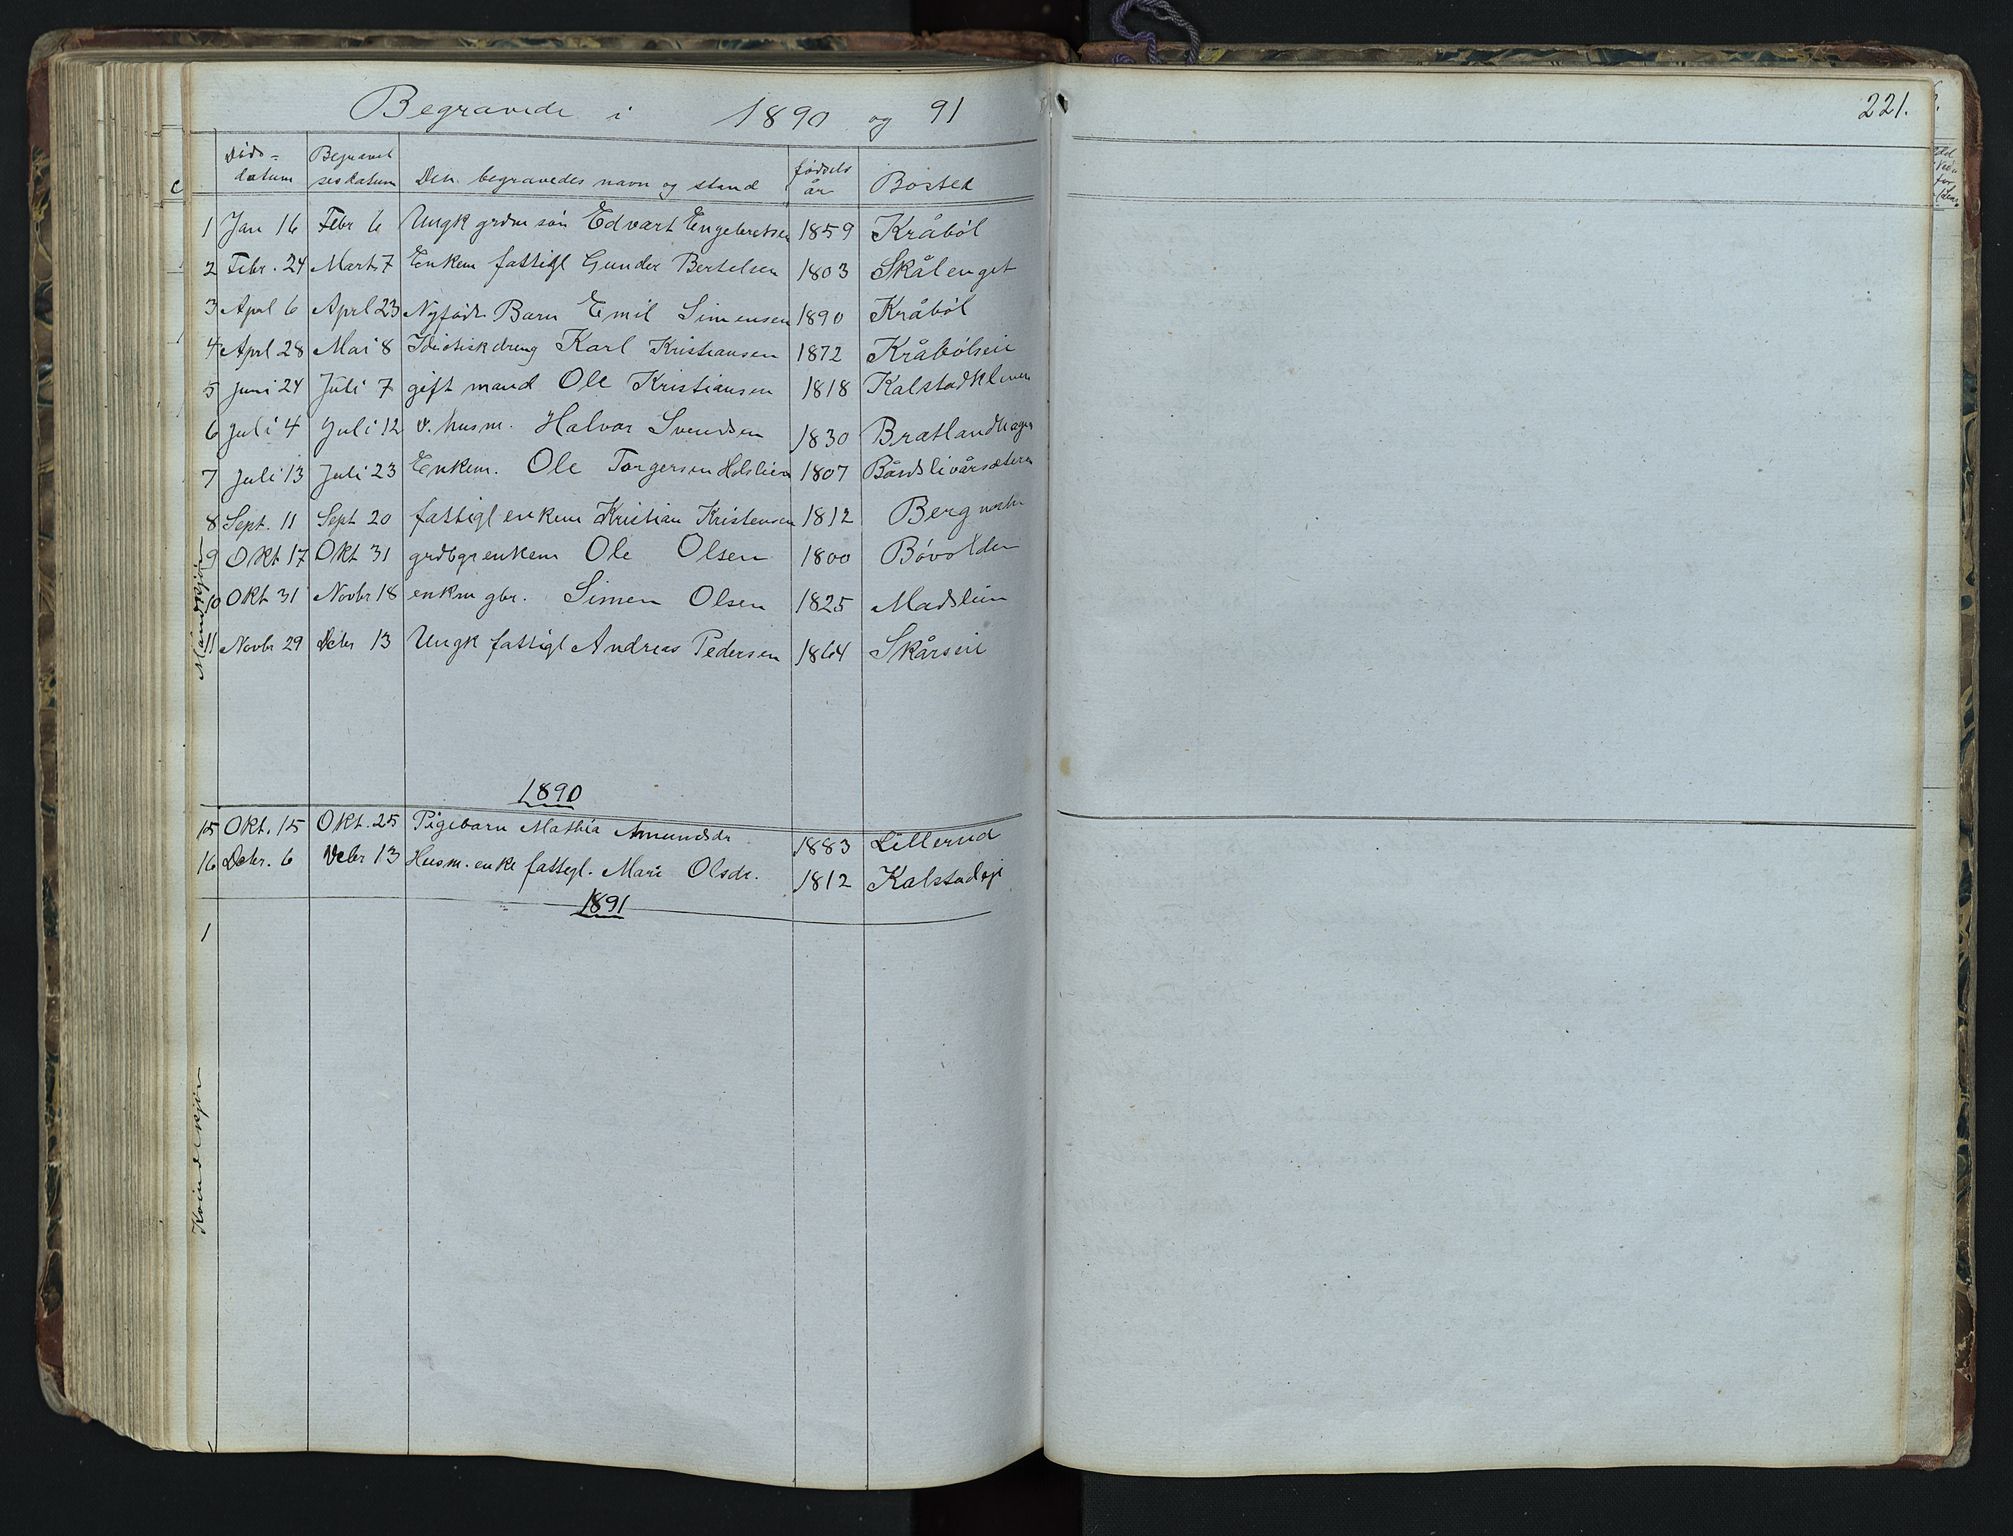 Begravede i 1890 og 91
221.
Døds= datum Begravel sesdatum Den begravedes navn og stand fødsels år Bosted
1 Jan 16 Febr 6 Ungk grdm søn Edvart Engebretsen 1859 Kråbøl
2 Febr. 24 Marts 7 Enkem fattigl Gunder Bertelsen 1803 Skålenget
3 Aprl 6 Aprl 23 Nyfødt Barn Emil Simensen 1890 Kråbøl
4 Aprl 28 Mai 8 Idiotisk dreng Karl Kristiansen 1872 Kråbølseie
5 Juni 24 Juli 7 gift mand Ole Kristiansen 1818 Kalstadkleven
6 Juli 4 Juli 12 v. husm. Halvor Svendsen 1830 Bratlandhagen
7 Juli 13 Juli 23 Enkem. Ole Torgersen Holslien 1807 Bårdslivårsæteren
8 Sept. 11 Sept 20 fattigl enkem Kristian Kristensen 1812 Berg
9 Okt 17 Okt 31 grdbgrenkem Ole Olsen 1800 Bøvolden
10 Okt 31 Novbr 18 enkm gbr. Simen Olsen 1825 Madslien
11 Novbr 29 Debr 13 Ungk fattigl Andreas Pedersen 1864 Skårseie
Mandkjøn
1890
15 Okt. 15 Okt. 25 Pigebarn Mathia Amundsdr 1883 Lillerud
16 Debr. 6 Debr 13 Husm. enke fattigl. Mari Olsdr. 1812 Kalstadeje
1891
1
Kvindekjøn